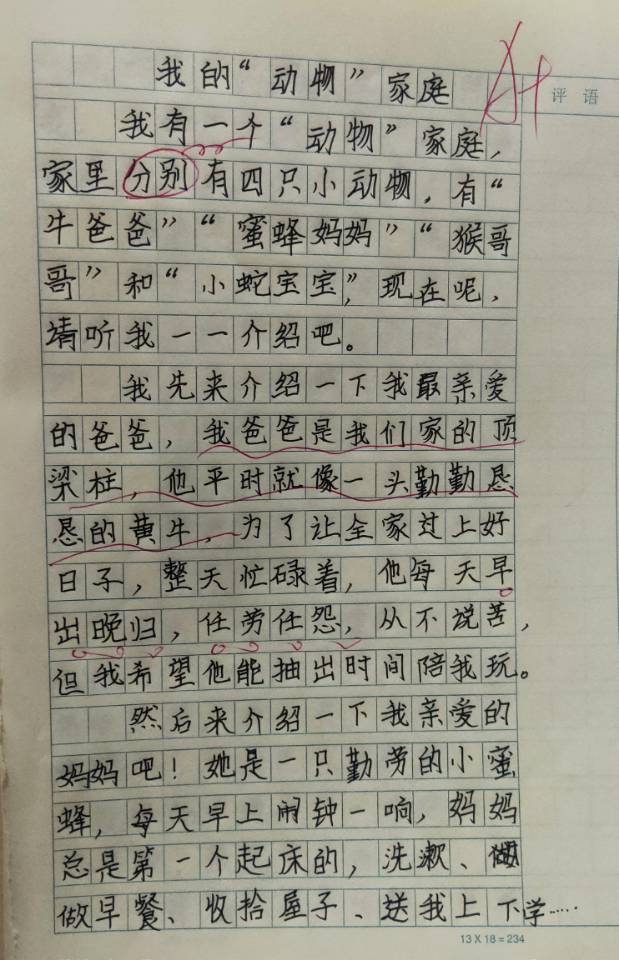 我的“动物”家庭
A+
评语
我有一个“动物”家庭，
家里分别有四只小动物，有“
牛爸爸”“蜜蜂妈妈”“猴哥
哥”和“小蛇宝宝”，现在呢，
请听我一一介绍吧。
我先来介绍一下我最亲爱
的爸爸，我爸爸是我们家的顶
梁柱，他平时就像一头勤勤恳
恳的黄牛，为了让全家过上好
日子，整天忙碌着，他每天早
出晚归，任劳任怨，从不说苦，
但我希望他能抽出时间陪我玩。
然后来介绍一下我亲爱的
妈妈吧！她是一只勤劳的小蜜
蜂，每天早上闹钟一响，妈妈
总是第一个起床的，洗漱、
做早餐、收拾屋子、送我上下学……
13×18=234